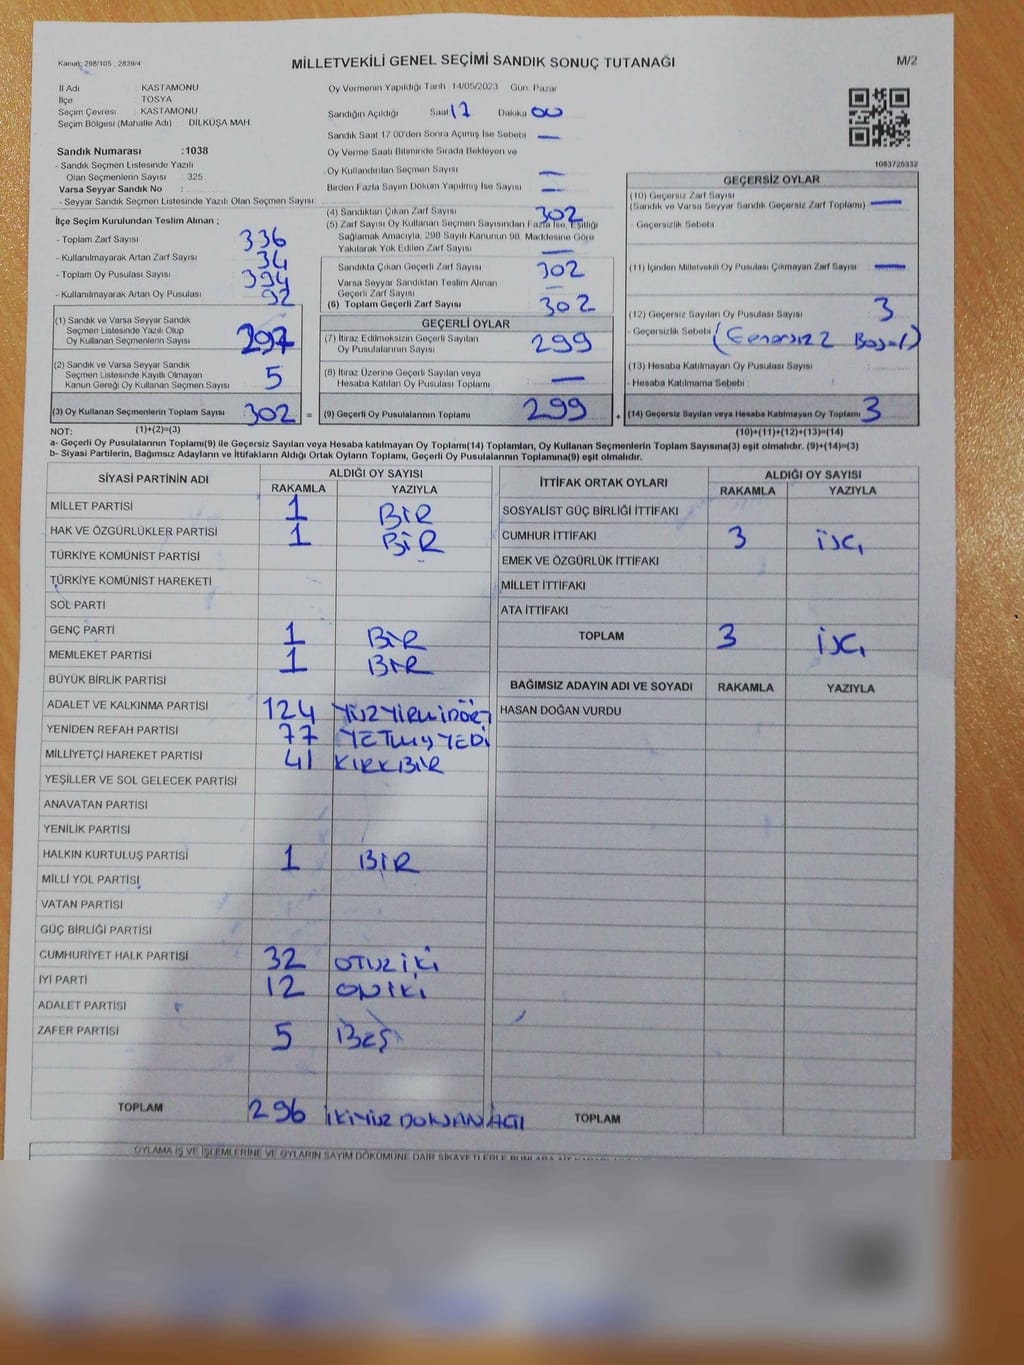 Kanun: 298/105 , 2839/4
MİLLETVEKİLİ GENEL SEÇİMİ SANDIK SONUÇ TUTANAĞI
M/2
İl Adı : KASTAMONU
İlçe : TOSYA
Seçim Çevresi : KASTAMONU
Seçim Bölgesi (Mahalle Adı) DİLKÜŞA MAH.
Sandık Numarası :1038
- Sandık Seçmen Listesinde Yazılı
Olan Seçmenlerin Sayısı : 325
Varsa Seyyar Sandık No :
- Seyyar Sandık Seçmen Listesinde Yazılı Olan Seçmen Sayısı:
İlçe Seçim Kurulundan Teslim Alınan ;
- Toplam Zarf Sayısı 336
- Kullanılmayarak Artan Zarf Sayısı 34
- Toplam Oy Pusulası Sayısı 394
- Kullanılmayarak Artan Oy Pusulası 92
(1) Sandık ve Varsa Seyyar Sandık
Seçmen Listesinde Yazılı Olup
Oy Kullanan Seçmenlerin Sayısı 297
(2) Sandık ve Varsa Seyyar Sandık
Seçmen Listesinde Kayıtlı Olmayan
Kanun Gereği Oy Kullanan Seçmen Sayısı 5
(3) Oy Kullanan Seçmenlerin Toplam Sayısı 302 =
(1)+(2)=(3)
Oy Vermenin Yapıldığı Tarih 14/05/2023 Gün: Pazar
Sandığın Açıldığı Saat 17 Dakika 00
Sandık Saat 17 00'den Sonra Açılmış İse Sebebi —
Oy Verme Saati Bitiminde Sırada Bekleyen ve
Oy Kullandırılan Seçmen Sayısı —
Birden Fazla Sayım Döküm Yapılmış İse Sayısı —
(4) Sandıktan Çıkan Zarf Sayısı 302
(5) Zarf Sayısı Oy Kullanan Seçmen Sayısından Fazla İse, Eşitliği
Sağlamak Amacıyla, 298 Sayılı Kanunun 98. Maddesine Göre
Yakılarak Yok Edilen Zarf Sayısı —
Sandıkta Çıkan Geçerli Zarf Sayısı 302
Varsa Seyyar Sandıktan Teslim Alınan
Geçerli Zarf Sayısı —
(6) Toplam Geçerli Zarf Sayısı 302
GEÇERLİ OYLAR
(7) İtiraz Edilmeksizin Geçerli Sayılan
Oy Pusulalarının Sayısı 299
(8) İtiraz Üzerine Geçerli Sayılan veya
Hesaba Katılan Oy Pusulası Toplamı —
(9) Geçerli Oy Pusulalarının Toplamı 299 +
1083725332
GEÇERSİZ OYLAR
(10) Geçersiz Zarf Sayısı
(Sandık ve Varsa Seyyar Sandık Geçersiz Zarf Toplamı) —
- Geçersizlik Sebebi
(11) İçinden Milletvekili Oy Pusulası Çıkmayan Zarf Sayısı —
(12) Geçersiz Sayılan Oy Pusulası Sayısı 3
- Geçersizlik Sebebi
(13) Hesaba Katılmayan Oy Pusulası Sayısı
- Hesaba Katılmama Sebebi
(14) Geçersiz Sayılan veya Hesaba Katılmayan Oy Toplamı 3
(10)+(11)+(12)+(13)=(14)
NOT:
a- Geçerli Oy Pusulalarının Toplamı(9) ile Geçersiz Sayılan veya Hesaba katılmayan Oy Toplamı(14) Toplamları, Oy Kullanan Seçmenlerin Toplam Sayısına(3) eşit olmalıdır. (9)+(14)=(3)
b- Siyasi Partilerin, Bağımsız Adayların ve İttifakların Aldığı Ortak Oyların Toplamı, Geçerli Oy Pusulalarının Toplamına(9) eşit olmalıdır.
SİYASİ PARTİNİN ADI ALDIĞI OY SAYISI
RAKAMLA YAZIYLA
MİLLET PARTİSİ 1 BİR
HAK VE ÖZGÜRLÜKLER PARTİSİ 1 BİR
TÜRKİYE KOMÜNİST PARTİSİ
TÜRKİYE KOMÜNİST HAREKETİ
SOL PARTİ
GENÇ PARTİ 1 BİR
MEMLEKET PARTİSİ 1 BİR
BÜYÜK BİRLİK PARTİSİ
ADALET VE KALKINMA PARTİSİ 124 YÜZYİRMİDÖRT
YENİDEN REFAH PARTİSİ 77 YETMİŞ YEDİ
MİLLİYETÇİ HAREKET PARTİSİ 41 KIRKBİR
YEŞİLLER VE SOL GELECEK PARTİSİ
ANAVATAN PARTİSİ
YENİLİK PARTİSİ
HALKIN KURTULUŞ PARTİSİ 1 BİR
MİLLİ YOL PARTİSİ
VATAN PARTİSİ
GÜÇ BİRLİĞİ PARTİSİ
CUMHURİYET HALK PARTİSİ 32 OTUZ İKİ
İYİ PARTİ 12 ONİKİ
ADALET PARTİSİ
ZAFER PARTİSİ 5 BEŞ
TOPLAM 296 İKİYÜZ DOKSAN ALTI
İTTİFAK ORTAK OYLARI ALDIĞI OY SAYISI
RAKAMLA YAZIYLA
SOSYALİST GÜÇ BİRLİĞİ İTTİFAKI
CUMHUR İTTİFAKI 3 ÜÇ
EMEK VE ÖZGÜRLÜK İTTİFAKI
MİLLET İTTİFAKI
ATA İTTİFAKI
TOPLAM 3 ÜÇ
BAĞIMSIZ ADAYIN ADI VE SOYADI RAKAMLA YAZIYLA
HASAN DOĞAN VURDU
TOPLAM
OYLAMA İŞ VE İŞLEMLERİNE VE OYLARIN SAYIM DÖKÜMÜNE DAİR ŞİKAYETLERLE